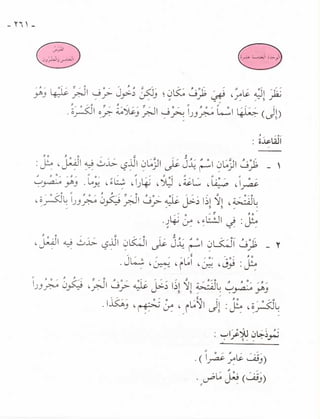 - ٢٦١ -
الوحدة الخامسة عشرة
الدرس
الخامس والعشرون
نَظَرَ إِلَيْهِ عَامِرٌ، فَهِيَ ظَرْفُ مَكَانٍ؛ وَلَكِنَّ دُخُولَ حَرْفِ الْجَرِّ عَلَيْهَا وَهُوَ
(إِلَى) جَعَلَهَا اسْمًا مَجْرُورًا بِحَرْفِ الْجَرِّ وَعَلَامَةُ جَرِّهِ الْكَسْرَةُ.
الْقَاعِدَةُ :
١ - ظَرْفُ الزَّمَانِ اسْمٌ يَدُلُّ عَلَى الزَّمَانِ الَّذِي حَدَثَ فِيهِ الْفِعْلُ، مِثْلُ :
عَصْرًا، صَيْفًا، سَاعَةً، لَيْلًا، نَهَارًا، شِتَاءً، يَوْمًا. وَهُوَ مَنْصُوبٌ
بِالْفَتْحَةِ، إِلَّا إِذَا دَخَلَ عَلَيْهِ حَرْفُ الْجَرِّ فَيَكُونُ مَجْرُورًا بِالْكَسْرَةِ،
مِثْلُ : فِي الشِّتَاءِ، مِنْ نَهَارٍ.
٢ - ظَرْفُ الْمَكَانِ اسْمٌ يَدُلُّ عَلَى الْمَكَانِ الَّذِي حَدَثَ فِيهِ الْفِعْلُ،
مِثْلُ : فَوْقَ، بَيْنَ، أَمَامَ، يَمِينَ، شِمَالَ.
وَهُوَ مَنْصُوبٌ بِالْفَتْحَةِ إِلَّا إِذَا دَخَلَ عَلَيْهِ حَرْفُ الْجَرِّ، فَيَكُونُ مَجْرُورًا
بِالْكَسْرَةِ، مِثْلُ : إِلَى الْأَمَامِ، مِنْ تَحْتِهِمْ، وَهَكَذَا.
نَمُوذَجَانِ لِلْإِعْرَابِ :
(وَقَفَ عَامِرٌ عَصْرًا).
(وَقَفَ) فِعْلٌ مَاضٍ.